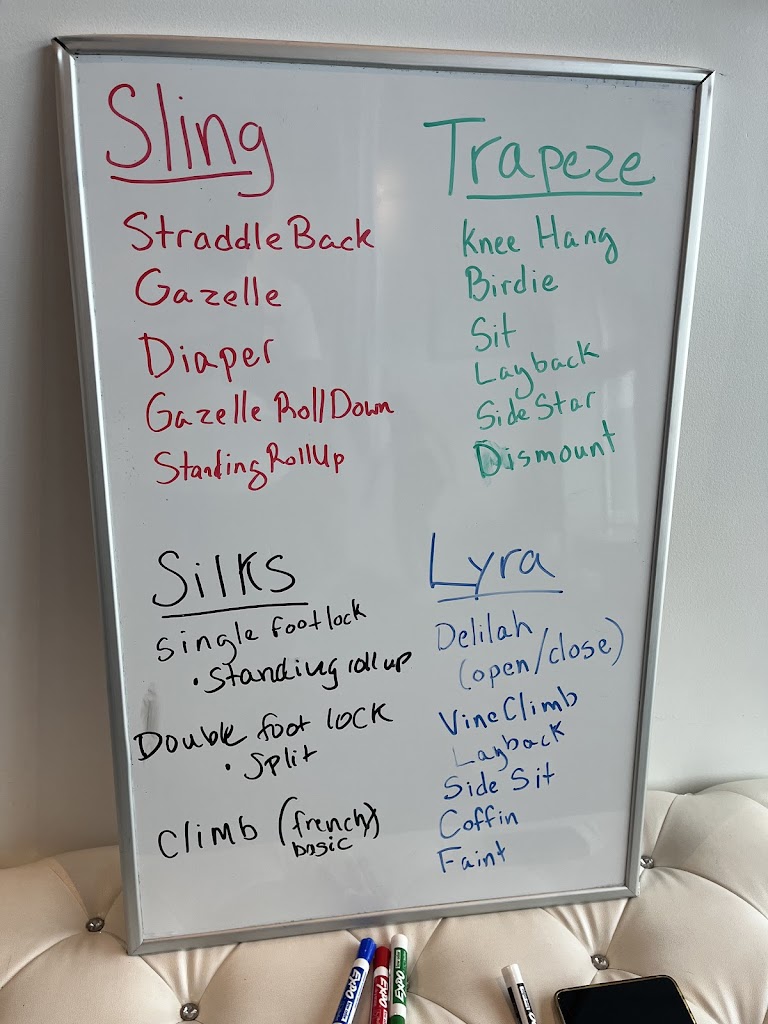 Sling
Straddle Back
Gazelle
Diaper
Gazelle Roll Down
Standing Roll Up
Trapeze
Knee Hang
Birdie
Sit
Layback
Side Star
Dismount
Silks
single foot lock
• standing roll up
Double foot lock
• Split
climb (french)
basic
Lyra
Delilah
(open/close)
Vine Climb
Layback
Side Sit
Coffin
Faint
EXPO
EXPO
EXPO